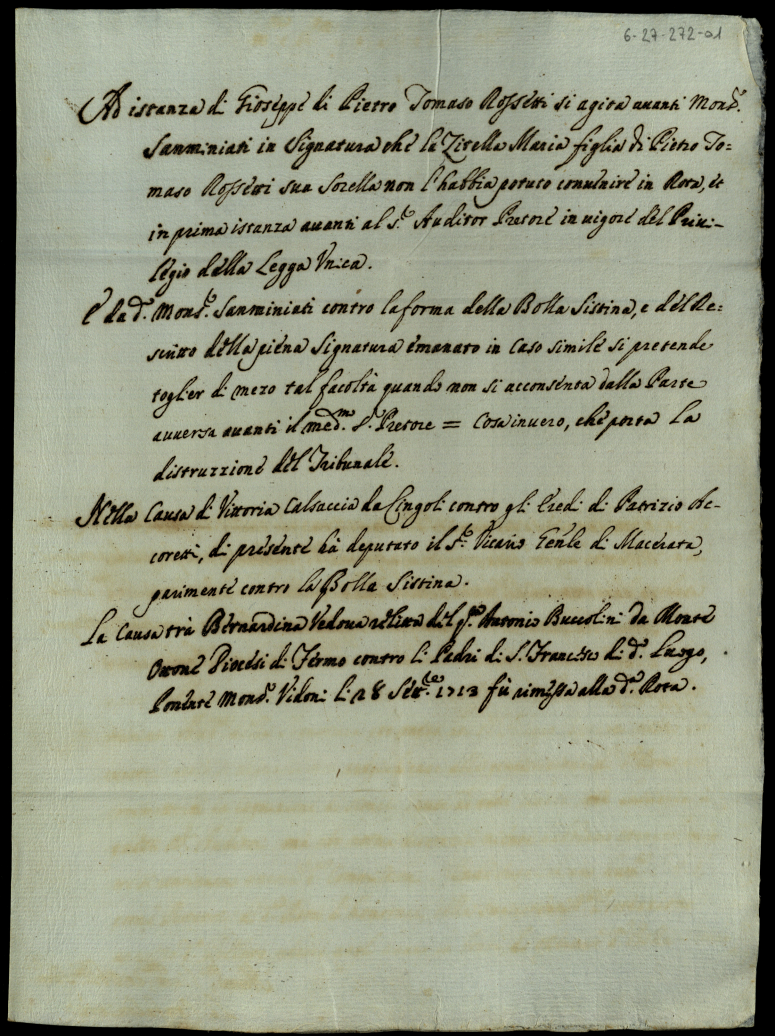 6-27-272-01
Ad istanza di Gioseppe di Pietro Tomaso Rossetti si agita avanti Mons.r
Sanminiati in Signatura che la Zitella Maria figlia di Pietro To=
maso Rossetti sua sorella non l'habbia potuto convenire in Rota, et
in prima istanza avanti al S.r Auditor Pretore in vigore del Privi-
legio della Legga Unica.
E da d.o Mons.r Sanminiati contro la forma della Bolla Sistina, e del Re-
scritto della piena Signatura emanato in caso simile si pretende
toglier di mezo tal facoltà quando non si acconsenta dalla Parte
avversa avanti il med.mo S.r Pretore = Cosa invero, che porta la
distruzzione del Tribunale.
Nella Causa di Vittoria Calsuccia da Cingoli contro gli Eredi di Patrizio Ac-
coretti, di presente hà deputato il S.r Vicario Gen̄le di Macerata,
parimente contro la Bolla Sistina.
La Causa trà Bernardina Vedova relitta del q.m Antonio Buccolini da Monte
Ottone Diocesi di Fermo contro li Padri di S. Francesco di d.o Luogo,
Ponente Mons.r Vidoni li 28 Sett.bre 1713 fù rimessa alla d.a Rota.